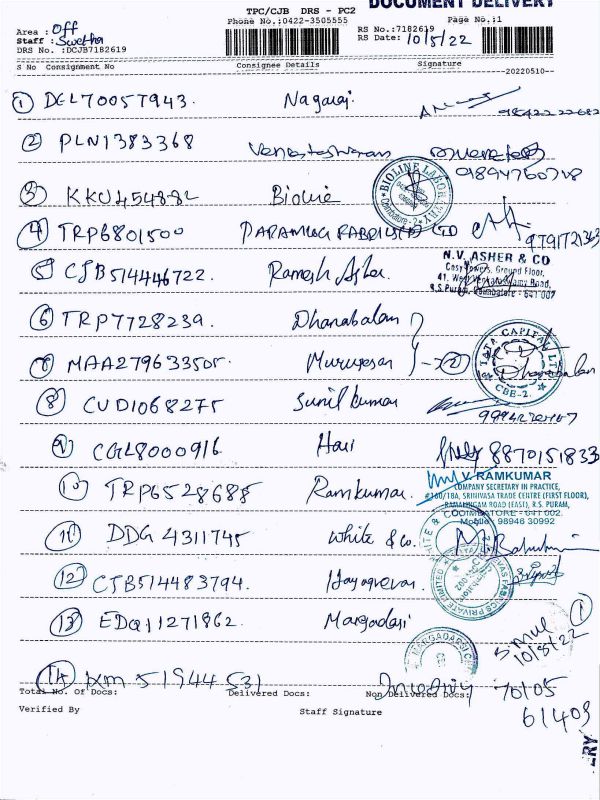 DOCUMENT DELIVERY
TPC/CJB DRS - PC2
Phone No.:0422-3505555
Page No.:1
Area : Off
Staff : Swetha
DRS No. :DCJB7182619
RS No.:7182619
RS Date: 10/5/22
S No Consignment No Consignee Details Signature
20220510--
1 DEL70057943. Nagaraj.
2 PLN1383368 Venkateshwaran
9894760748
3 KKU454882 Bioline
BIOLINE LABORATORY
Coimbatore-2
4 TRP6801500
9791721343
N.V. ASHER & CO
Cosy Towers, Ground Floor,
41, West Venkataswamy Road,
R.S.Puram, Coimbatore - 641 002
5 CJB514446722. Ramesh Asher.
6 TRP7728239. Dhanabalan
MAA279633505. Murugesan
CAPITAL LTD
CBE-2.
Dhanabalan
8 CUD1068275 Sunil kumar
9 CGL8000916 Hari 8870151833
10 TRP6528688 Ramkumar.
V. RAMKUMAR
COMPANY SECRETARY IN PRACTICE,
#160/18A, SRINIVASA TRADE CENTRE (FIRST FLOOR),
RAMALINGAM ROAD (EAST), R.S. PURAM,
COIMBATORE - 641 002.
Mobile : 98946 30992
11 DDG 4311745 White & Co.
12 CJB514483794. Hayagrevar
PRIVATE LIMITED
13 EDQ11271862 Margadarsi
MARGADARSI
10/5/22
14 51944531 70105
61409
Total No. Of Docs: Delivered Docs: Non Delivered Docs:
Verified By Staff Signature